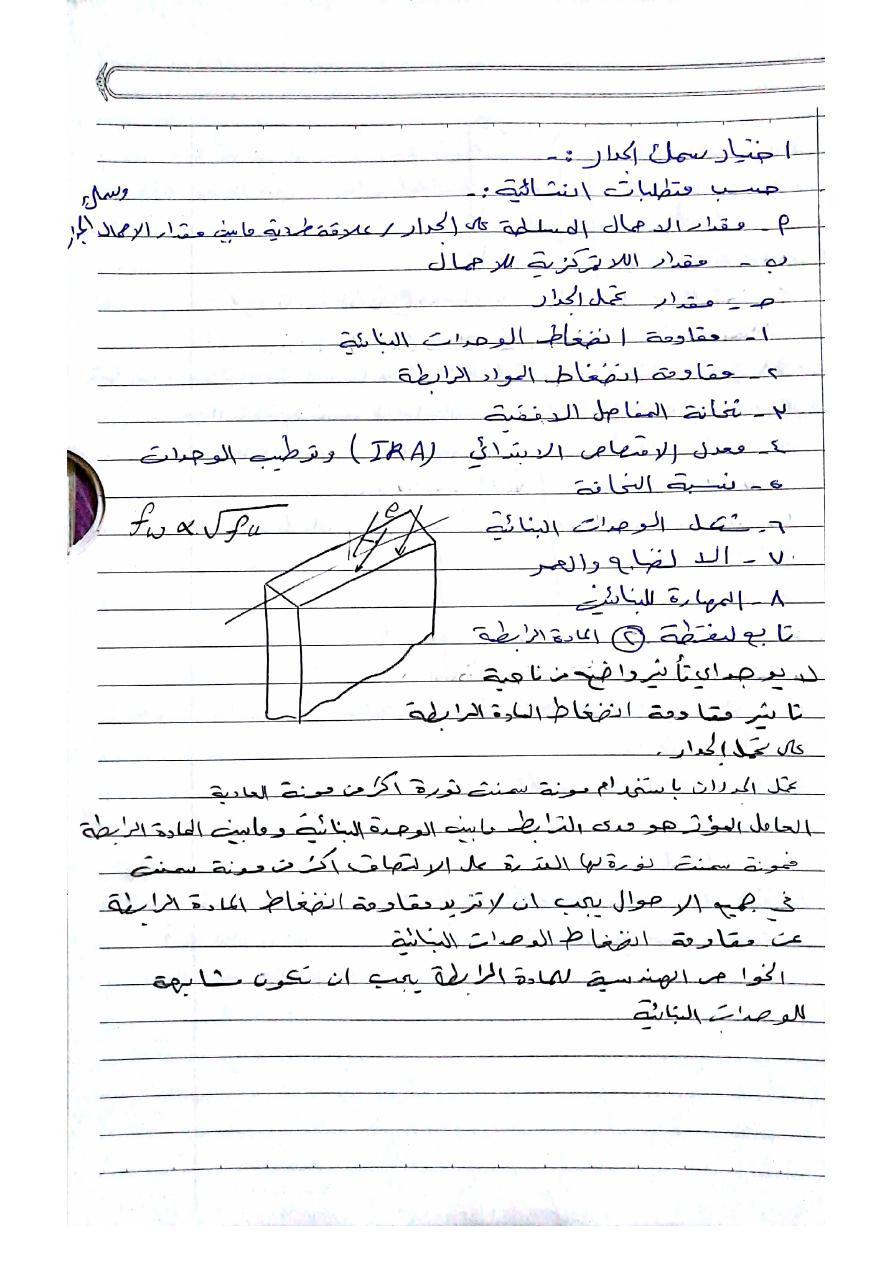 اختيار سمك الجدار :-
حسب متطلبات انشائية :-
أ- مقدار الاحمال المسلطة على الجدار / علاقة طردية مابين مقدار الاحمال وسمك الجدار
ب- مقدار اللاتمركزية للاحمال
ج- مقدار تحمل الجدار
١- مقاومة انضغاط الوحدات البنائية
٢- مقاومة انضغاط المواد الرابطة
٣- ثخانة المفاصل الافقية
٤- معدل الامتصاص الابتدائي (IRA) وترطيب الوحدات
٥- نسبة النحافة
fw ∝ √fu
e
٦- شكل الوحدات البنائية
٧- الانضاج والعمر
٨- المهارة للبنائين
تابع لنقطة (٢) المادة الرابطة
لا يوجد اي تأثير واضح من ناحية
تاثير مقاومة انضغاط المادة الرابطة
على تحمل الجدار .
تحمل الجدران باستخدام مونة سمنت نورة اكثر من مونة العادية
العامل المؤثر هو مدى الترابط مابين الوحدة البنائية ومابين المادة الرابطة
فمونة سمنت نورة لها القدرة على الالتصاق اكثر من مونة سمنت
في جميع الاحوال يجب ان لا تزيد مقاومة انضغاط المادة الرابطة
عن مقاومة انضغاط الوحدات البنائية
الخواص الهندسية للمادة الرابطة يجب ان تكون مشابهة
للوحدات البنائية